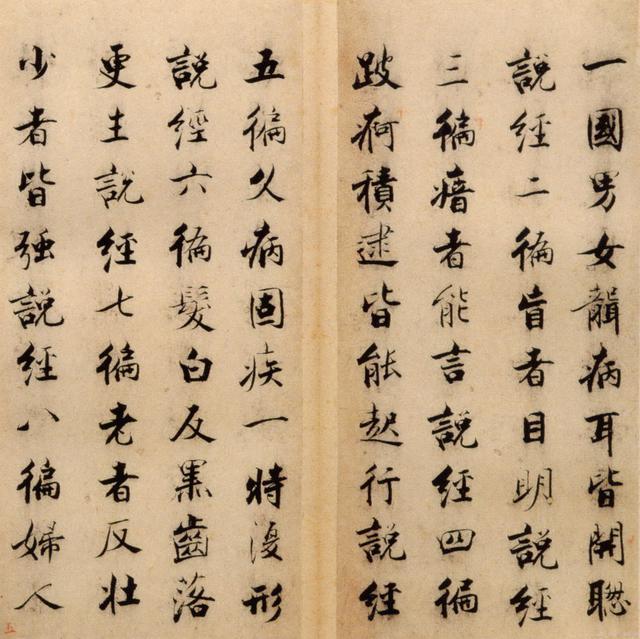 一國男女聾病耳皆開聰
說經二徧盲者目明說經
三徧瘖者能言說經四徧
跛痾積逮皆能起行說經
五徧久病固疾一時復形
說經六徧髮白反黑齒落
更生說經七徧老者反壯
少者皆强說經八徧婦人
五